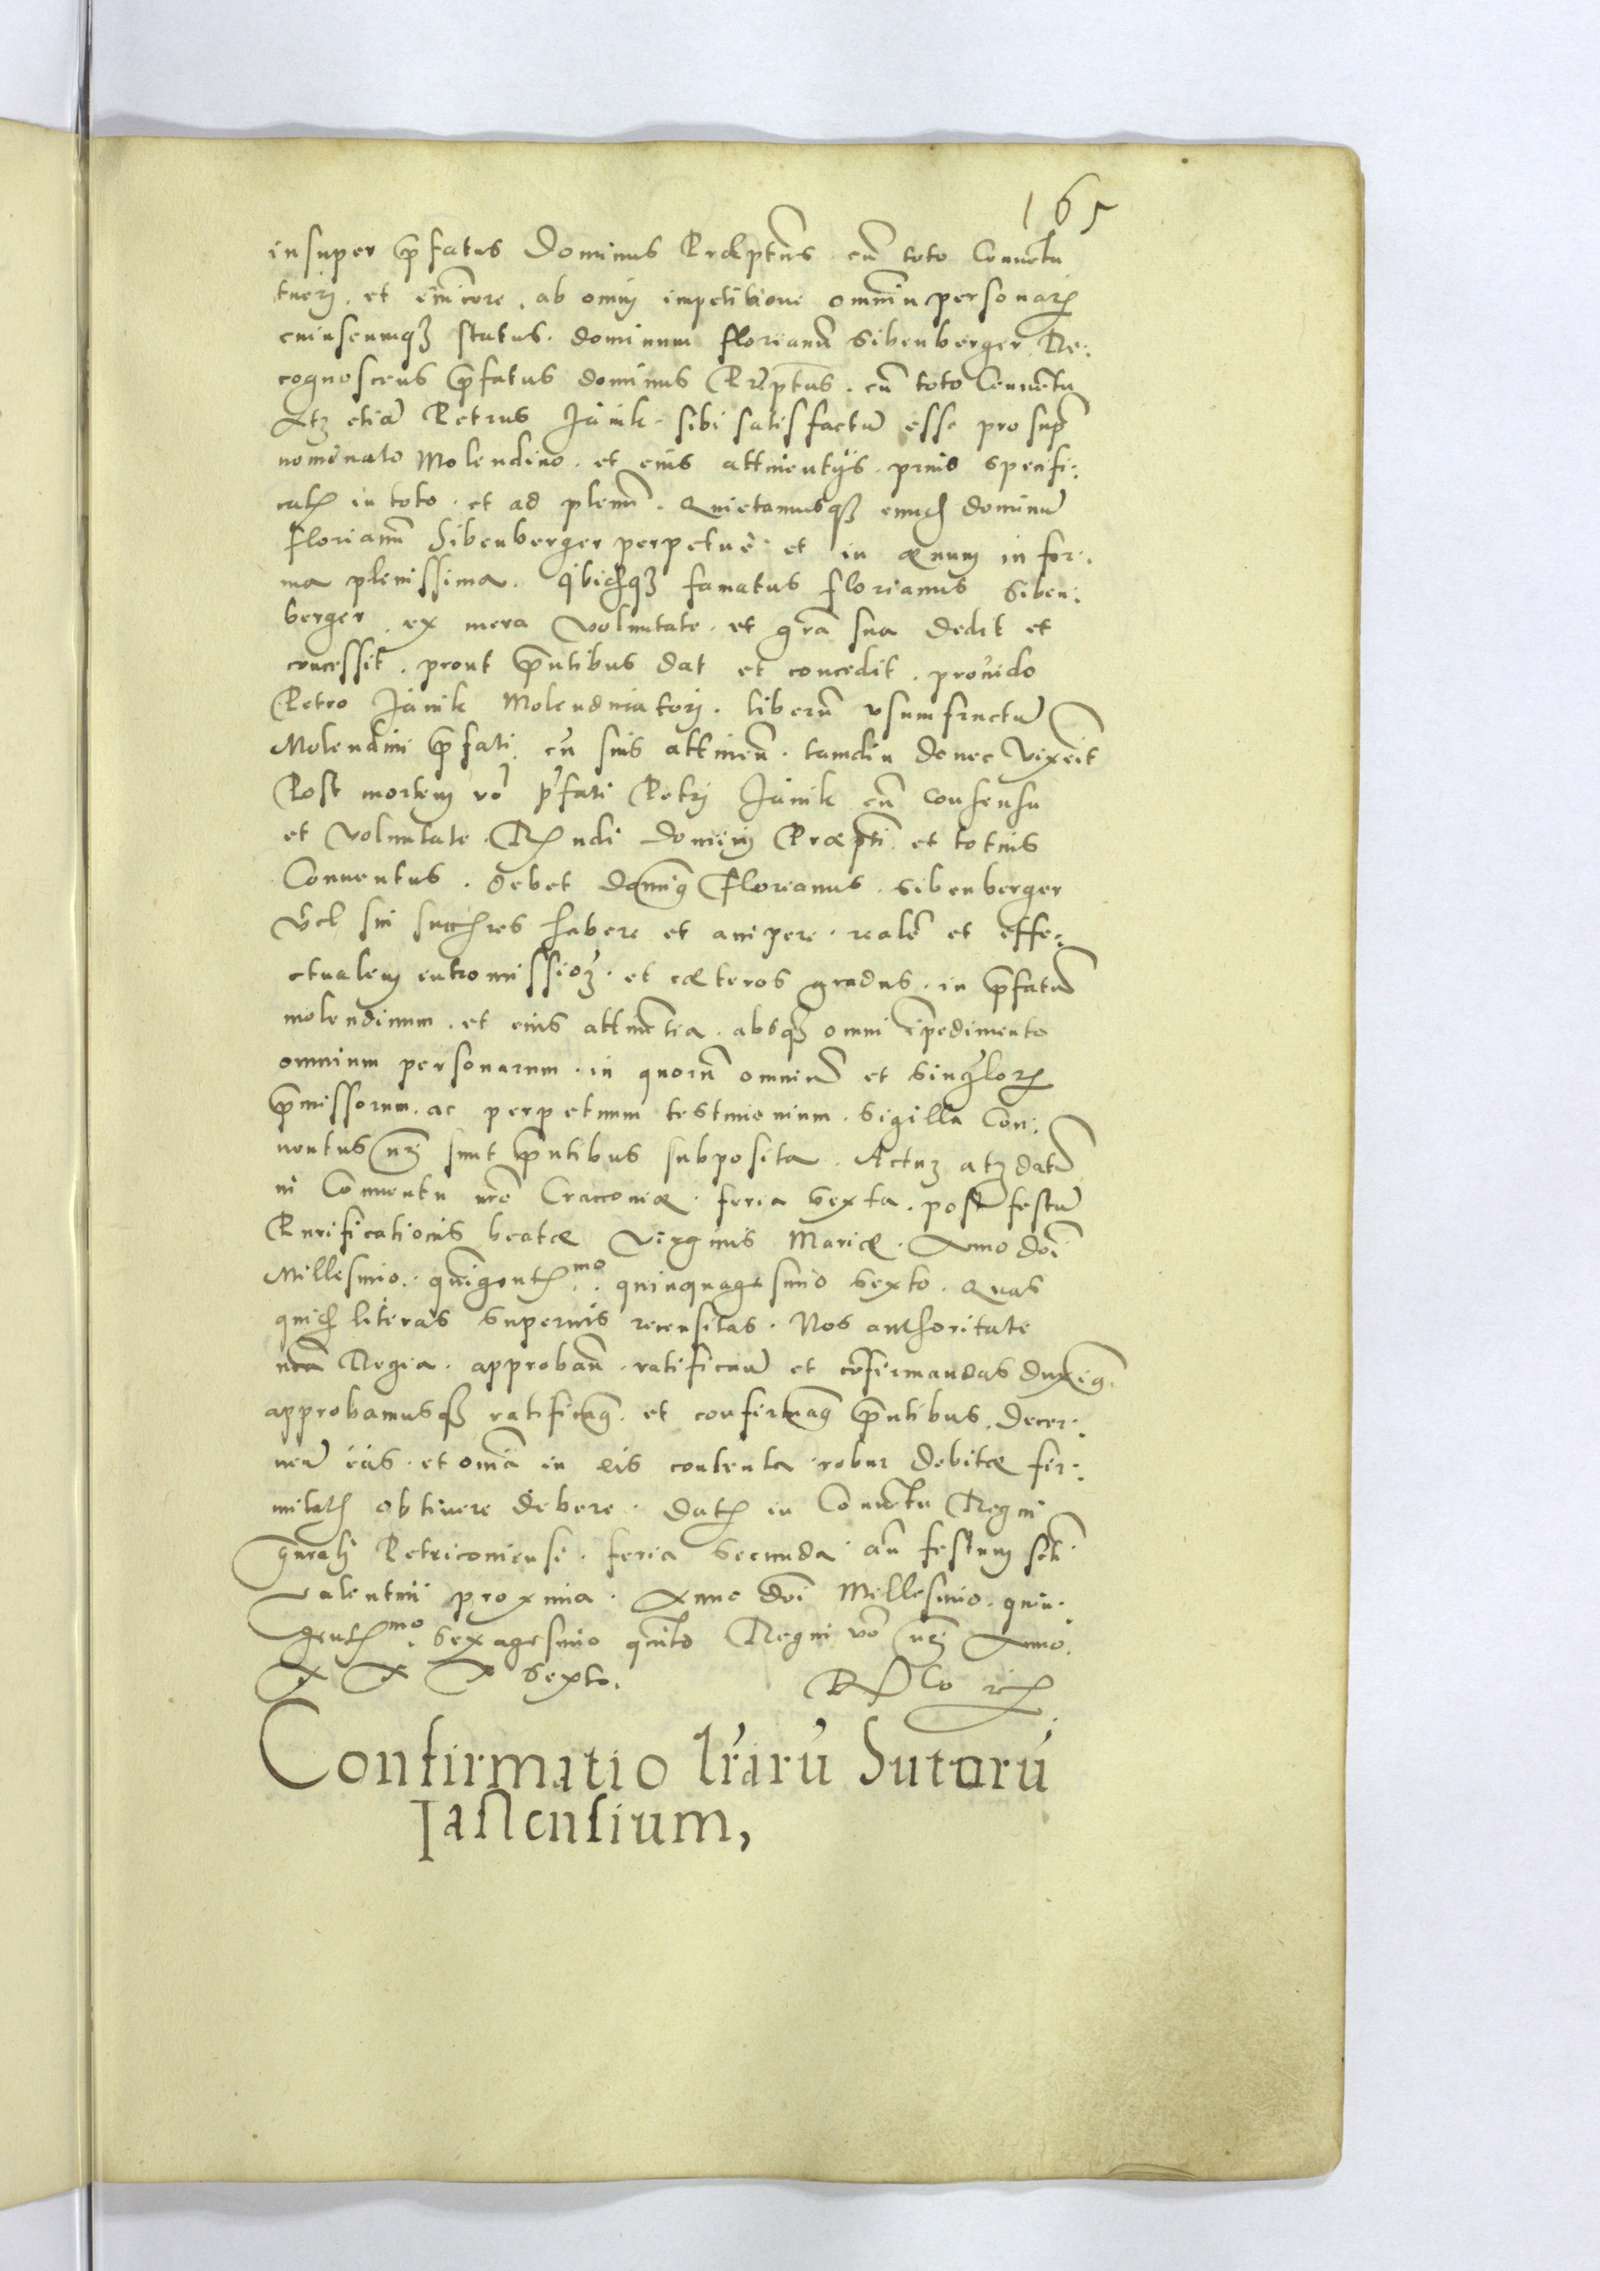 165
insuper p̄fatus Dominus Præptus cū toto Conuētu
tuerj. et euīcere. ab omnj impetitione omniū personarꝫ
cuiuscumqꝫ status. dominum Florianū Sibenberger. Re:
cognoscens p̄fatus dominus Præptus. cū toto Conuētu
Atqꝫ etiā Petrus Jänik. sibi satisfactū esse pro supra
nominato Molendino. et eius attinentijs. prius specifi:
catꝫ in toto. et ad plenū. Quietamusqꝫ eundꝫ dominū
Florianū Sibenberger perpetuè et in æuum in for:
ma plenissima. Ibidemqꝫ famatus Florianus Siben:
berger. ex mera voluntate. et grā sua dedit et
concessit. prout p̄ntibus dat et concedit. prouido
Petro Jänik Molendinatorj. liberū vsumfructū
Molendini p̄fati cū suis attinen̄. tamdiu donec vixerit
Post mortem vo p̄fati Petrj Jänik cū consensu
et voluntate Rꝫndi dominj Præpti et totius
Conuentus. debet dominꝰ Florianus. Sibenberger
Vel sui succꝫres habere et accipere. realē et effe:
ctualem intromissioꝫ. et cæteros gradus. in p̄fatū
molendinum. et eius attinētia. absqꝫ omni īpedimento
omnium personarum. in quorū omniū et singulorꝫ
p̄missorum. ac perpetuum testimonium. Sigilla Con:
uentus nrꝫ sunt p̄ntibus subposita. Actuꝫ atqꝫ datū
in Conuentu nrō Cracouiæ. feria sexta. post festū
Purificationis beatæ Virginis Mariæ. Anno doī
Millesimo. quīgentꝫmo. quinquagesimo sexto. Quas
quidꝫ literas superius recensitas. Nos authoritate
nrā Regia. approban̄. ratifican̄ et cōfirmandas duximꝰ.
approbamusqꝫ ratificamꝰ. et confirmamꝰ p̄ntibus. Decer:
nen̄ eas. et omīa in eis contenta robur debitæ fir:
mitatꝫ obtinere debere. Datꝫ in Conuētu Regni
gn̄ralj Petricouiensi. feria secunda an̄ festum sctī
Valentini proxima. Anno doī Millesimo. quin:
gentꝫmo. sexagesimo quīto Regni vō nrꝫ Anno.
X X X Sexto.
Confirmatio lr̄arū Sutorū
Jaslensium,